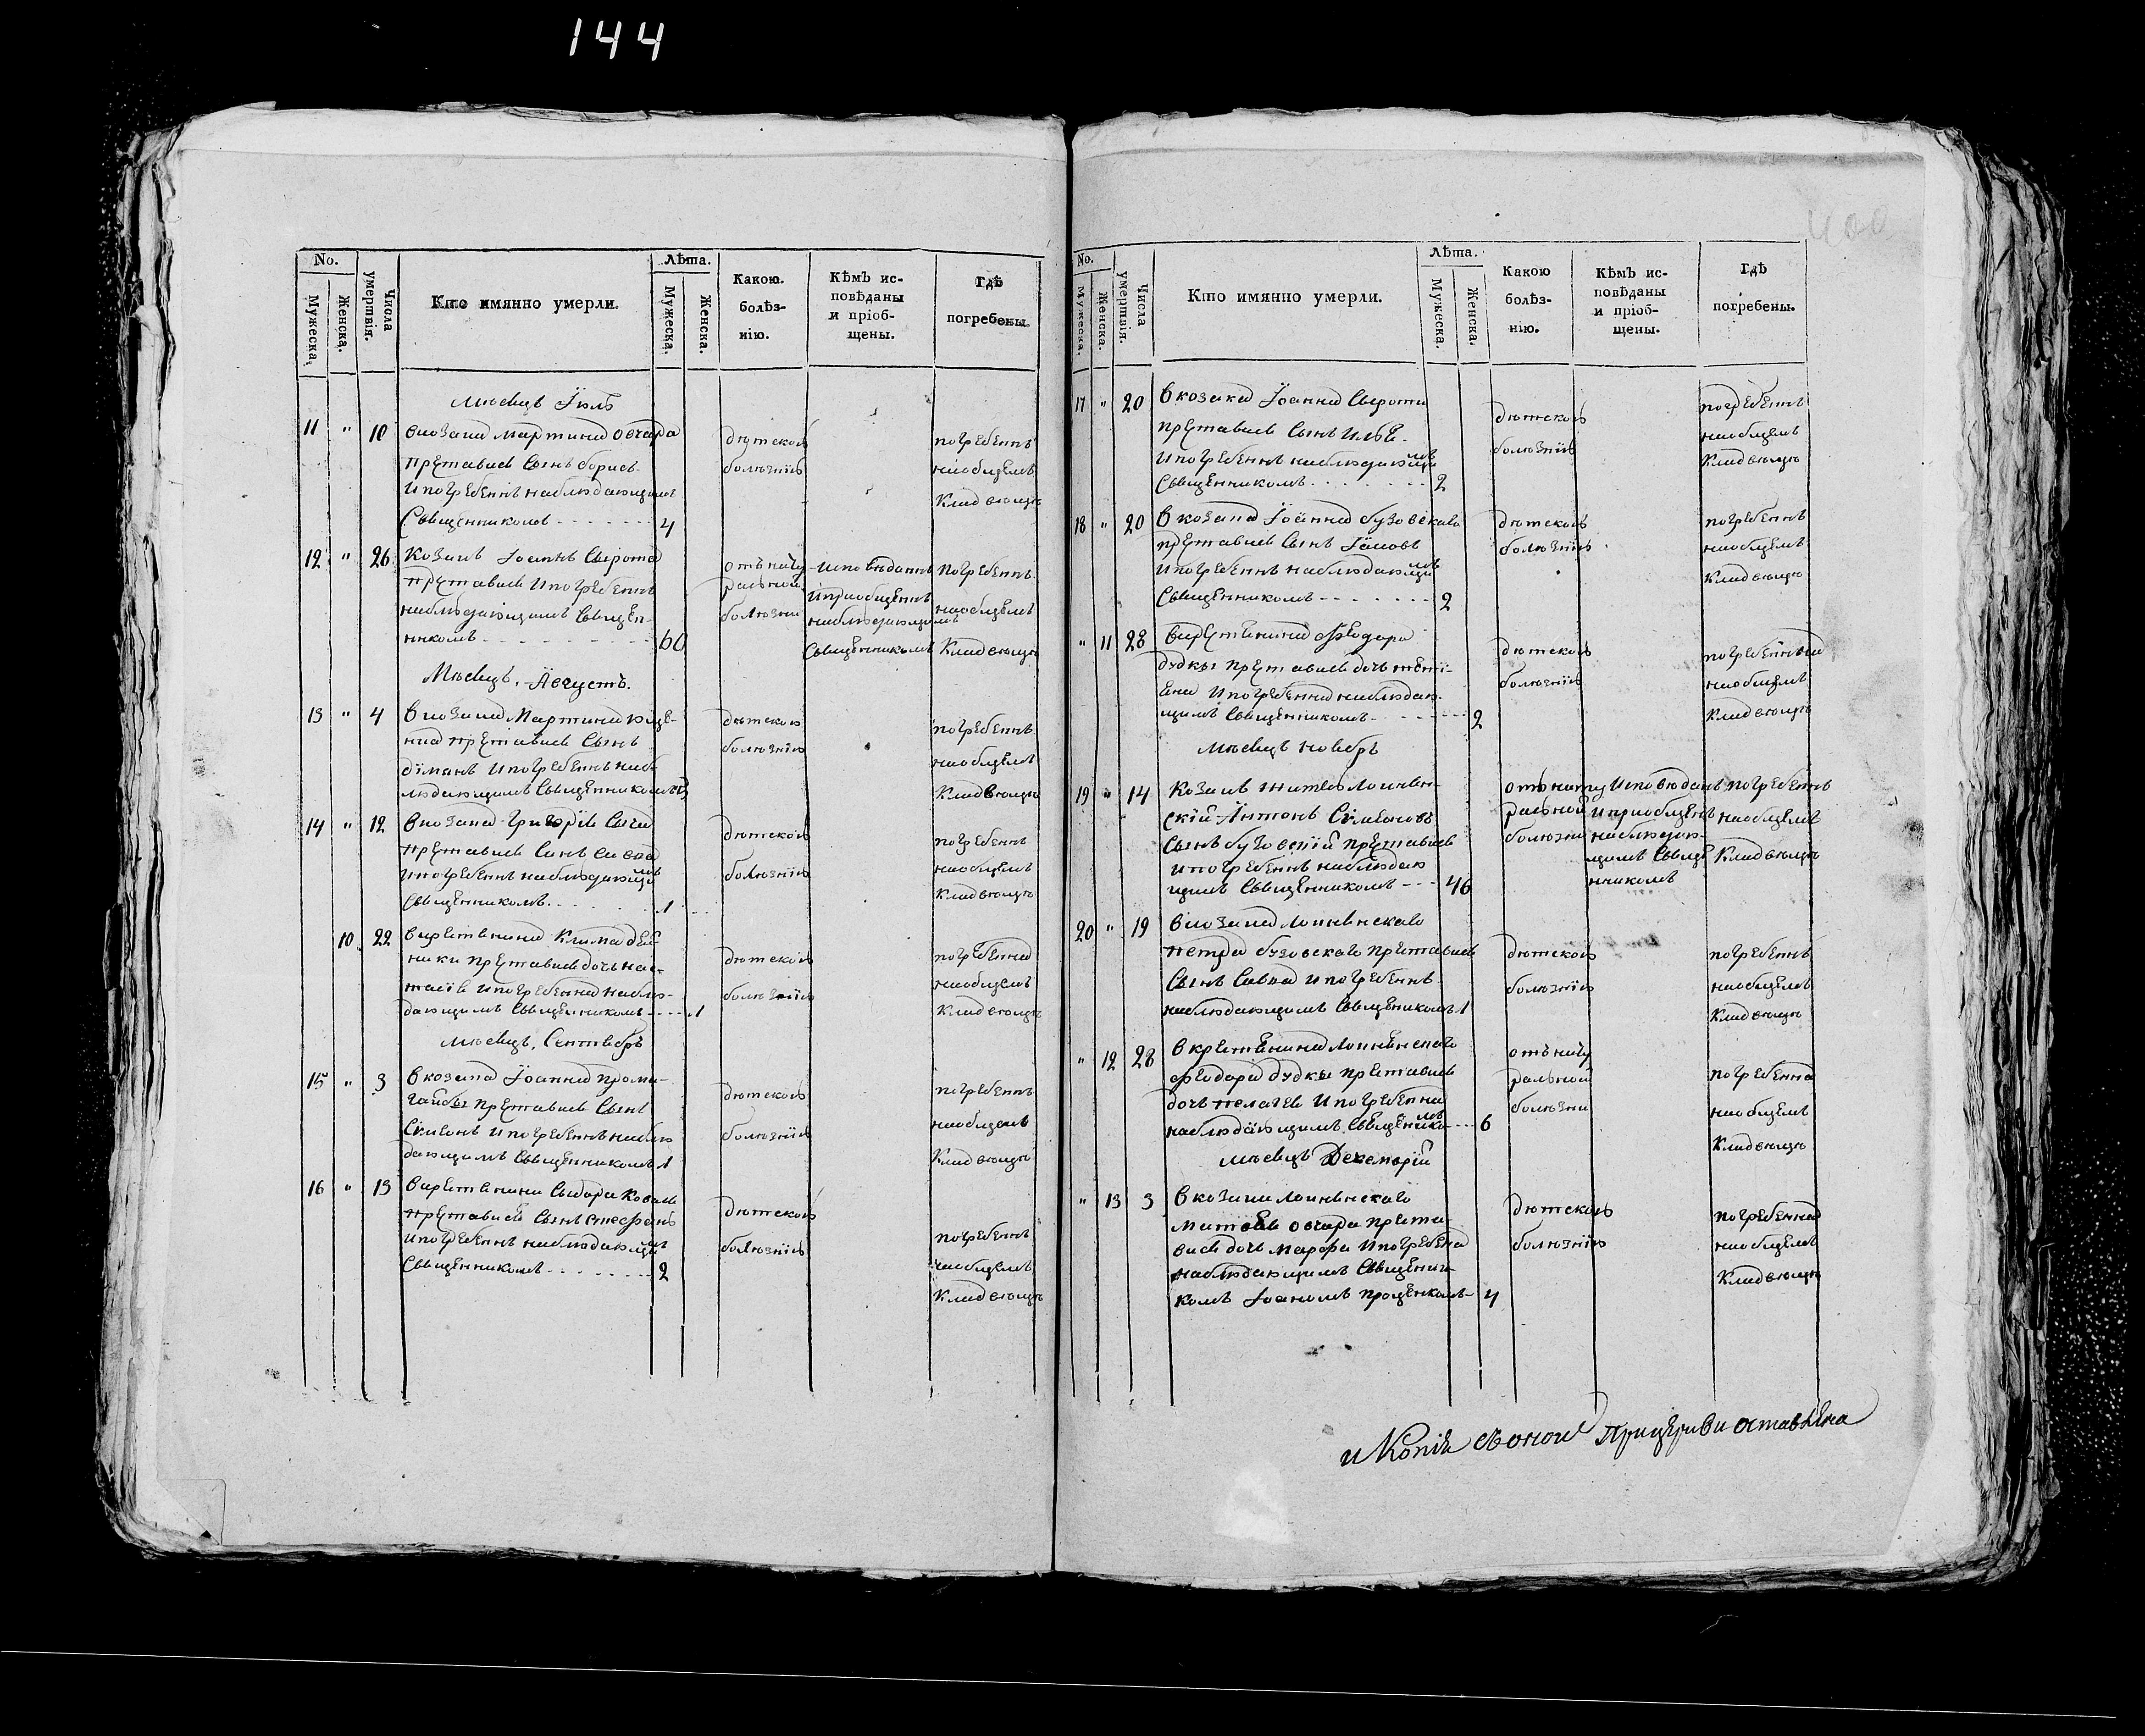 144
400
No.
Мужеска.
Женска.
Числа умертвія.
Кто имянно умерли.
Лѣта.
Мужеска.
Женска.
Какою. болѣз- нію.
Кѣмъ ис- повѣданы и пріоб- щены.
Гдѣ погребены.
Мѣсяцъ Іюль
11 " 10 Вкозака Мартина Овчара
преставися сынъ Борисъ
и погребеннъ наблюдающимъ
священникомъ 4
дѣтскою
болѣзнію
погребеннъ
наобщемъ
кладвѣщѣ
12 " 26 Козакъ Іоаннъ Сырота
преставися и погребеннъ
наблюдающимъ священ-
никомъ 60
отънату
ральной
болѣзни
исповѣданнъ
и приобщеннъ
наблюдающимъ
священникомъ
погребеннъ
наобщемъ
кладвѣщѣ
Мѣсяцъ. Августъ.
13 " 4 Вкозака Мартина
преставися сынъ
и погребеннъ наб-
людающимъ священникомъ
дѣтскою
болѣзнію
погребеннъ
наобщемъ
кладвѣщѣ
14 " 12 Вкозака Григорія
преставися синъ Савва
и погребеннъ наблюдающимъ
священникомъ 1
дѣтскою
болѣзнію
погребеннъ
наобщемъ
кладвѣщѣ
10 22 Вкрестянина Клима Дей-
ники преставися дочь Нас-
тасія и погребенна наблю-
дающимъ священникомъ 1
дѣтскою
болѣзнію
погребенна
наобщемъ
кладвѣщѣ
Мѣсяцъ. Сентябрь
15 " 3 Вкозака Іоанна Прома-
гайбы преставися сынъ
Симеонъ и погребеннъ наблю
дающимъ священникомъ 1
дѣтскою
болѣзнію
погребеннъ
наобщемъ
кладвѣщѣ
16 " 13 Вкрестянина Сыдора Коваля
преставися сынъ Стефанъ
и погребеннъ наблюдающимъ
священникомъ 2
дѣтскою
болѣзнію
погребеннъ
наобщемъ
кладвѣщѣ
No.
Мужеска.
Женска.
Числа умертвія.
Кто имянно умерли.
Лѣта.
Мужеска.
Женска.
Какою болѣз- нію.
Кѣмъ ис- повѣданы и пріоб- щены.
Гдѣ погребены.
17 " 20 Вкозака Іоанна Сыроти
преставися сынъ Илья
и погребеннъ наблюдающимъ
священникомъ 2
дѣтскою
болѣзнію
погребеннъ
наобщемъ
кладвѣщѣ
18 " 20 Вкозака Іоанна Бузовскаго
преставися сынъ Іаковъ
и погребеннъ наблюдающимъ
священникомъ 2
дѣтскою
болѣзнію
погребеннъ
наобщемъ
кладвѣщѣ
" 11 28 Вкрестянина Феодора
Дудкы преставися дочь
и погребенна наблюдаю-
щимъ священникомъ 2
дѣтскою
болѣзнію
погребенна
наобщемъ
кладвѣщѣ
Мѣсяцъ Ноябрь
19 " 14 Козакъ житель
Антонъ Симеоновъ
сынъ Бузовскій преставися
и погребеннъ наблюдаю
щимъ священникомъ 46
отънату
ральной
болѣзни
исповѣданъ
и приобщенъ
наблюдаю-
щимъ свяще
нникомъ
погребеннъ
наобщемъ
кладвѣщѣ
20 " 19 Вкозака
Петра Бузовскаго преставися
сынъ Савва и погребеннъ
наблюдающимъ священикомъ 1
дѣтскою
болѣзнію
погребеннъ
наобщемъ
кладвѣщѣ
" 12 28 Вкрестянина
Феодора Дудкы преставися
дочь Пелагея и погребенна
наблюдающимъ священикомъ 6
отънату
ральной
болѣзни
погребенна
наобщемъ
кладвѣщѣ
Мѣсяцъ Декемврій
" 13 3 Вкозака
Матвѣя Овчара преста-
вися дочь Марфа и погребена
наблюдающимъ священни-
комъ Іоаномъ Проценкомъ 4
дѣтскою
болѣзнію
погребенна
наобщемъ
кладвѣщѣ
и Копія съоной прицеркви оставлена